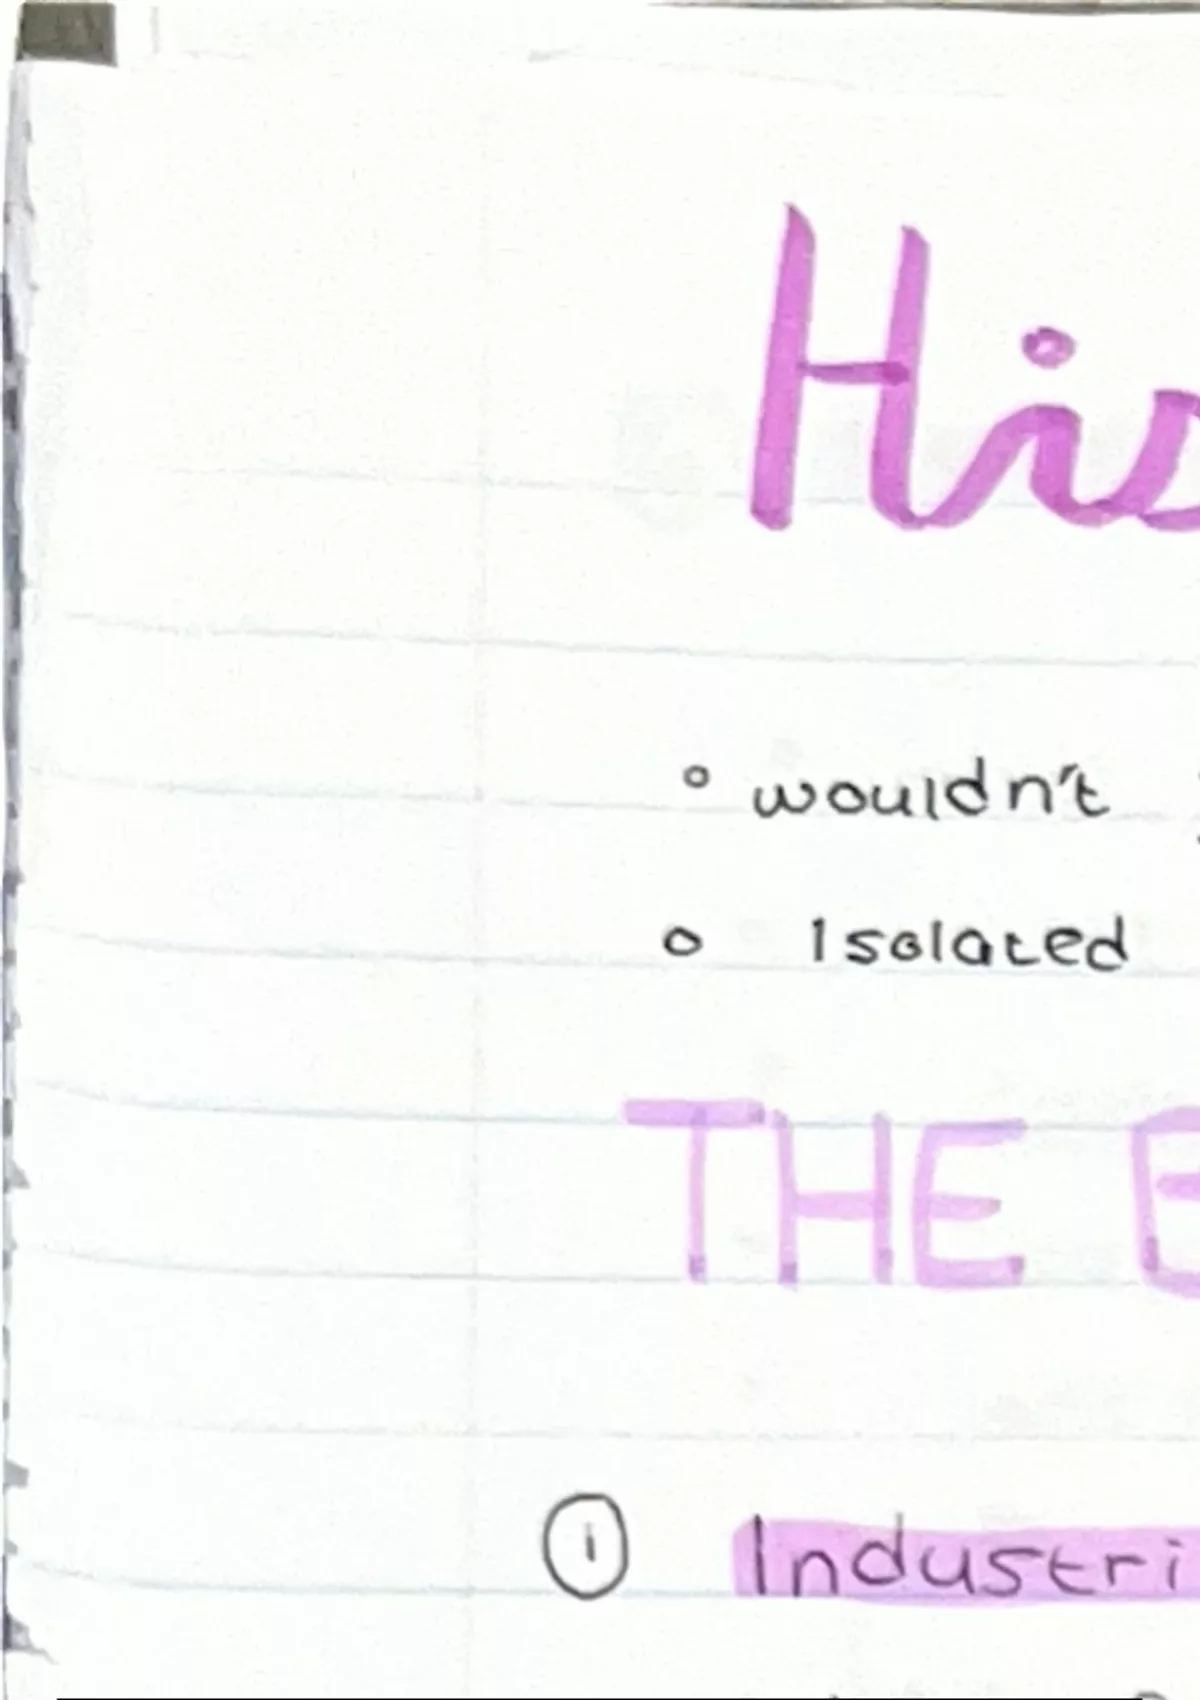 His
° wouldn't
o Isolated
THE E
① Industri